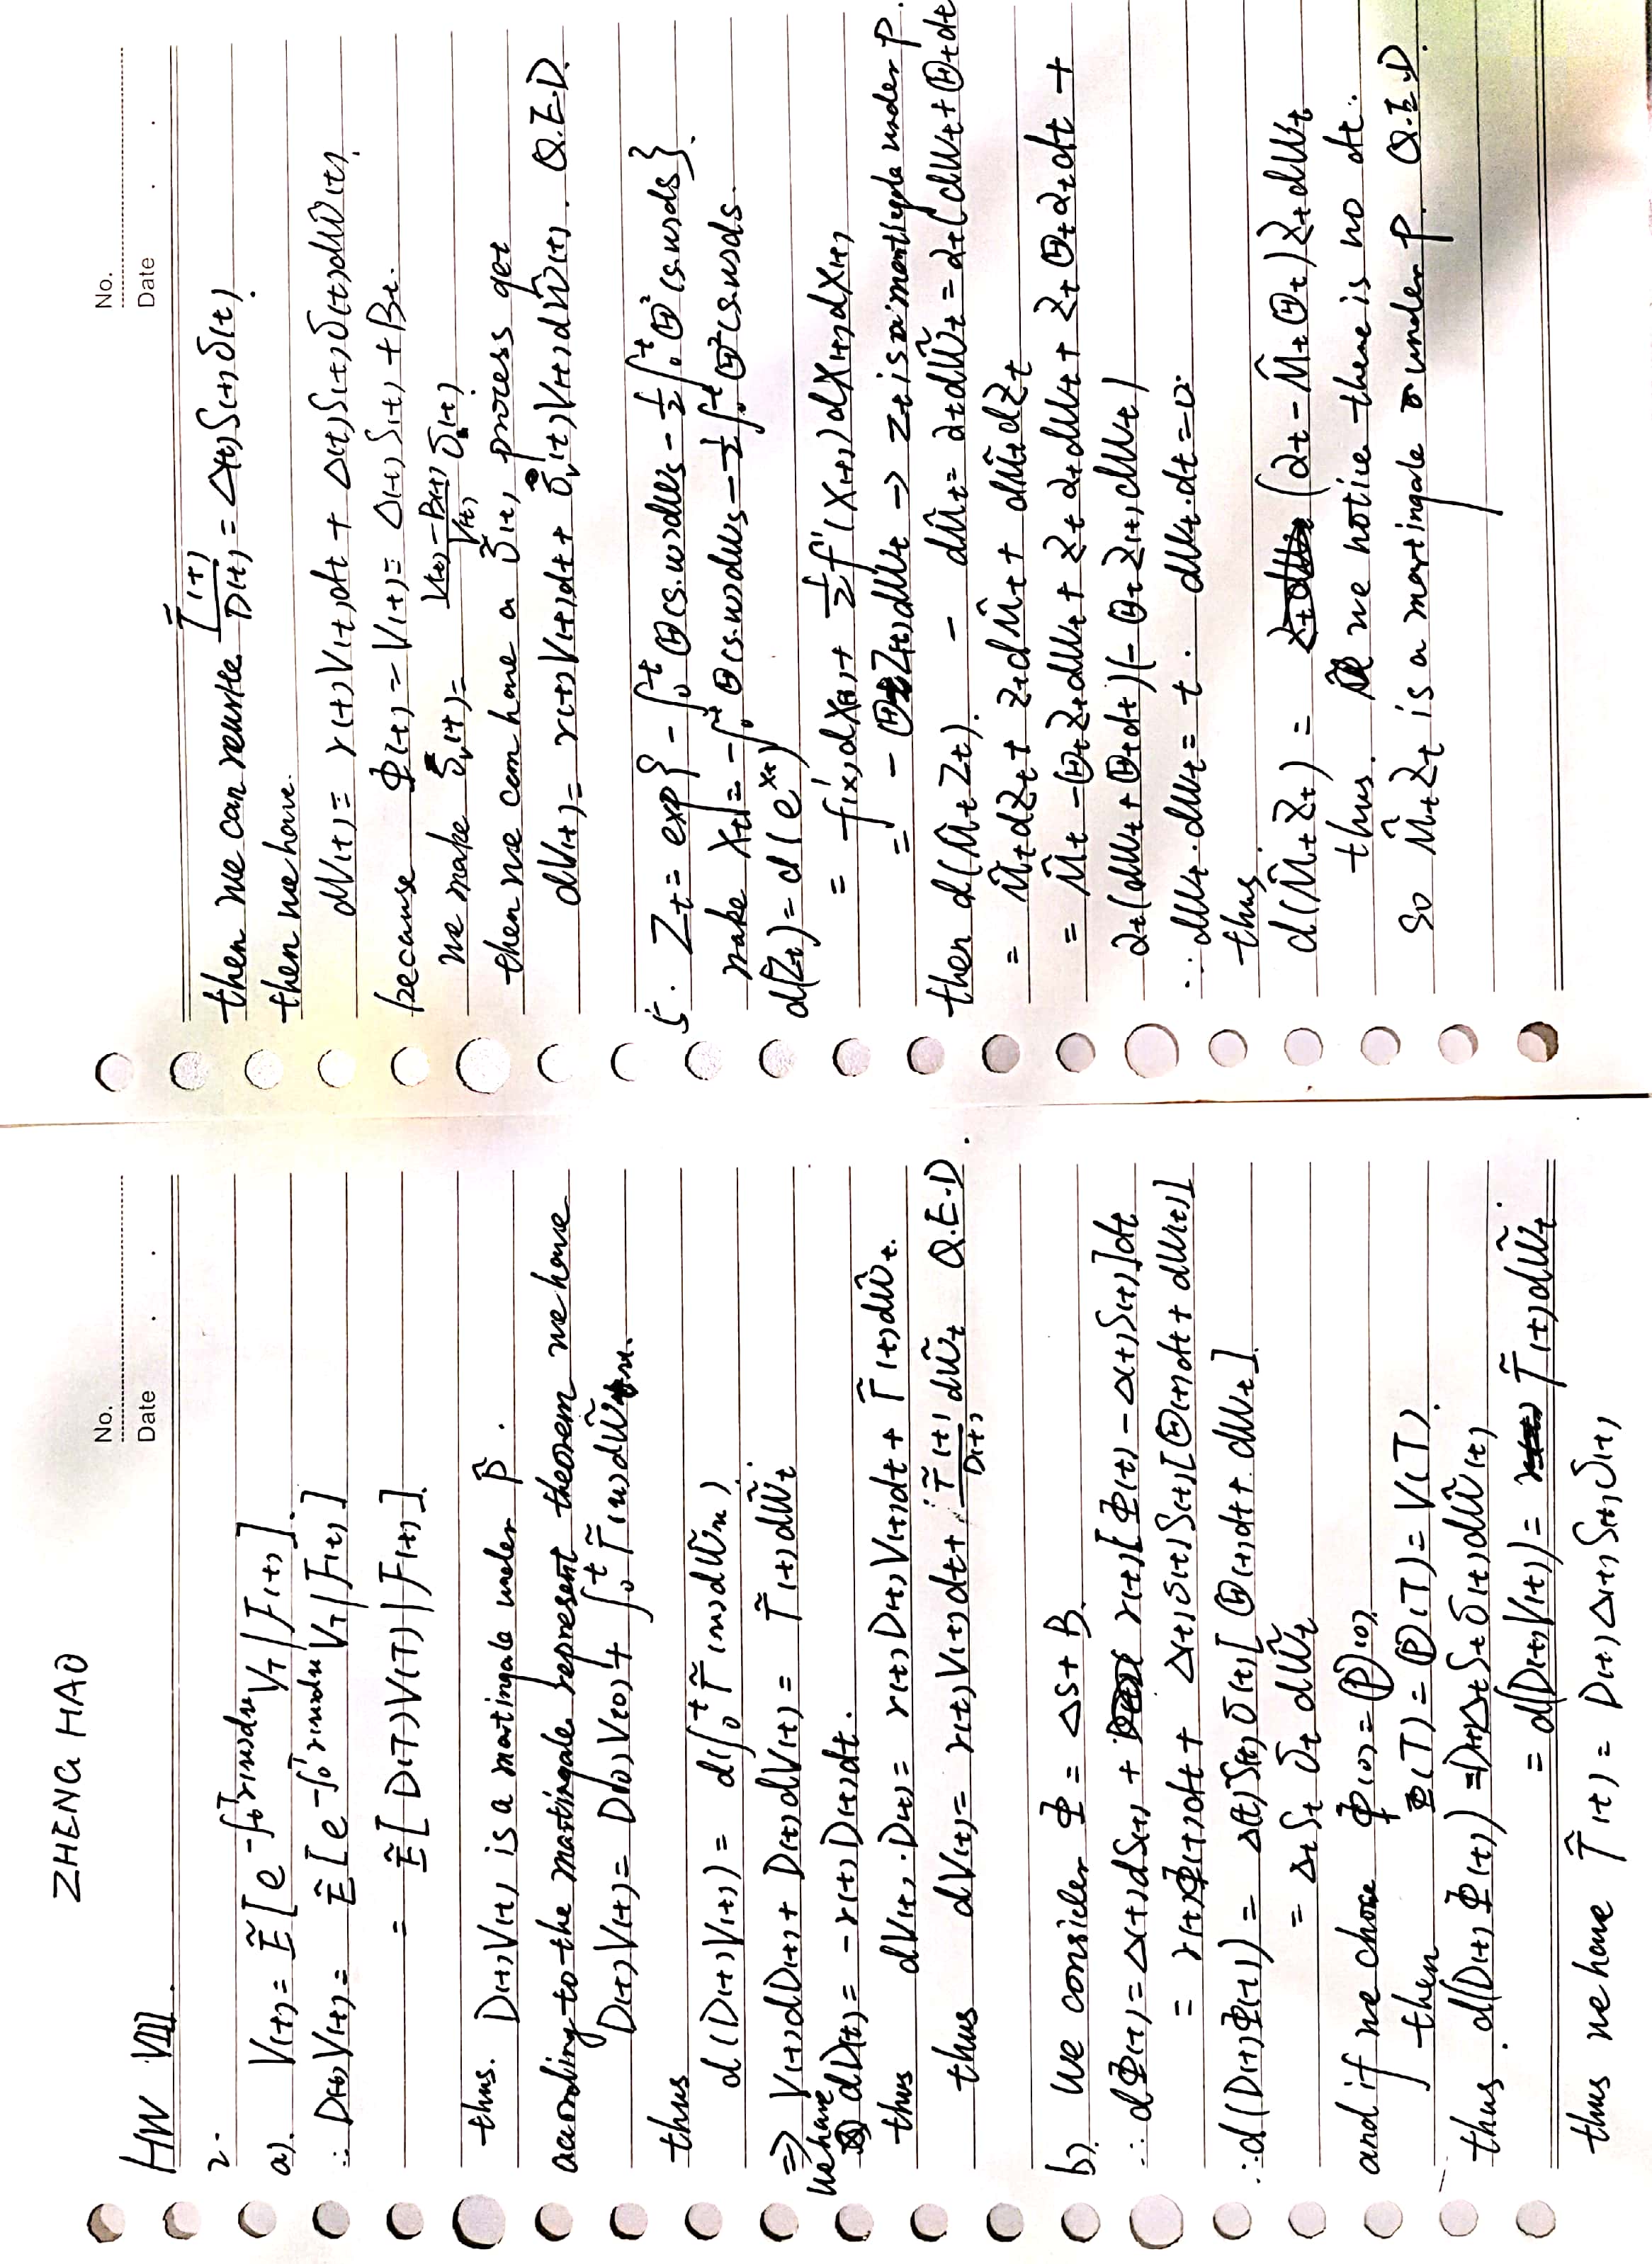 ZHENG HAO
No.
Date . .
HW VIII.
2.
a). V(t) = Ẽ[e^{-∫_t^T r(u)du} V_T | F(t)].
∴ D(t)V(t) = Ẽ[e^{-∫_0^T r(u)du} V_T | F(t)]
= Ẽ[D(T)V(T) | F(t)].
thus. D(t)V(t) is a martingale under P̃.
according to the martingale represent theorem we have
D(t)V(t) = D(0)V(0) + ∫_0^t Γ̃(u)dW̃u.
thus
d(D(t)V(t)) = d(∫_0^t Γ̃(u)dW̃u).
⇒ V(t)dD(t) + D(t)dV(t) = Γ̃(t)dW̃t
We have
dD(t) = -r(t)D(t)dt.
thus dV(t)·D(t) = r(t)D(t)V(t)dt + Γ̃(t)dW̃t.
thus dV(t) = r(t)V(t)dt + Γ̃(t)/D(t) dW̃t Q.E.D.
b). We consider Φ = ΔS + B.
∴ dΦ(t) = Δ(t)dS(t) + r(t)[Φ(t) - Δ(t)S(t)]dt
= r(t)Φ(t)dt + Δ(t)σ(t)S(t)[Θ(t)dt + dW(t)]
∴ d(D(t)Φ(t)) = Δ(t)S(t)σ(t)[Θ(t)dt + dWt].
= Δt St σt dW̃t
and if we chose Φ(0) = Ⓟ(0).
then Φ(T) = Ⓟ(T) = V(T).
thus. d(D(t)Φ(t)) = D(t)Δt St σ(t)dW̃(t)
= d(D(t)V(t)) = Γ̃(t)dW̃t
thus we have Γ̃(t) = D(t)Δ(t)S(t)σ(t)
No.
Date . .
then we can rewrite Γ̃(t)/D(t) = Δ(t)S(t)σ(t)
then we have.
dV(t) = r(t)V(t)dt + Δ(t)S(t)σ(t)dW̃(t).
because Φ(t) = V(t) = Δ(t)S(t) + Bt.
we make σ̃v(t) = (V(t)-B(t))/V(t) σ(t)
then we can have a σ̃(t) process get
dV(t) = r(t)V(t)dt + σ̃v(t)V(t)dW̃(t). Q.E.D.
5. Zt = exp{-∫_0^t Θ(s.w)dWs - ½∫_0^t Θ²(s.w)ds}.
make Xt = -∫_0^t Θ(s.w)dWs - ½∫_0^t Θ²(s.w)ds.
d(Zt) = d(e^{Xt})
= f'(x)dX(t) + ½f''(X(t))dX(t)dX(t)
= -ΘtZ(t)dWt → Zt is a martigale under P.
then d(M̃tZt). - dM̃t = αtdW̃t = αt(dWt + Θtdt
= M̃tdZt + ZtdM̃t + dM̃tdZt
= M̃t -ΘtZtdWt + ZtαtdWt + ZtΘtαtdt +
αt(dWt + Θtdt)(-ΘtZ(t)dWt)
∵ dWt·dWt = t. dWt·dt = 0.
thus.
d(M̃tZt) = (αt - M̃tΘt)ZtdWt
thus. we notice there is no dt.
So M̃tZt is a martingale under P. Q.E.D.